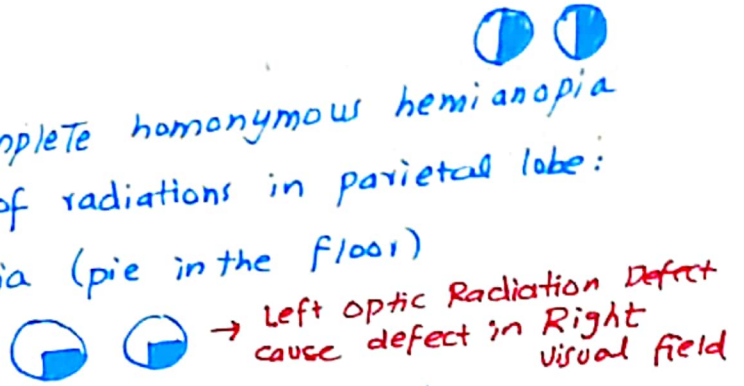 nplete homonymous hemianopia
of radiations in parietal lobe:
ia (pie in the floor)
→ Left optic Radiation Defect
cause defect in Right
visual field